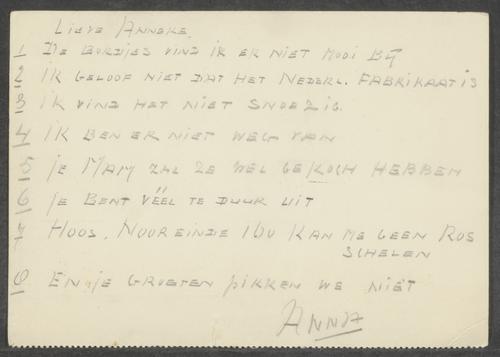 Lieve Anneke.
1 De Bordjes vind ik er niet mooi Bij
2 ik geloof niet dat het Nederl. Fabrikaat is
3 ik vind het niet snoezig.
4 ik ben er niet weg van
5 je Mam zal ze wel gekoch hebben
6 je Bent véél te duur uit
7 Hoos. Nooreinde 160 kan me geen Ros
schelen
8 En je groeten pikken we niet
Anna